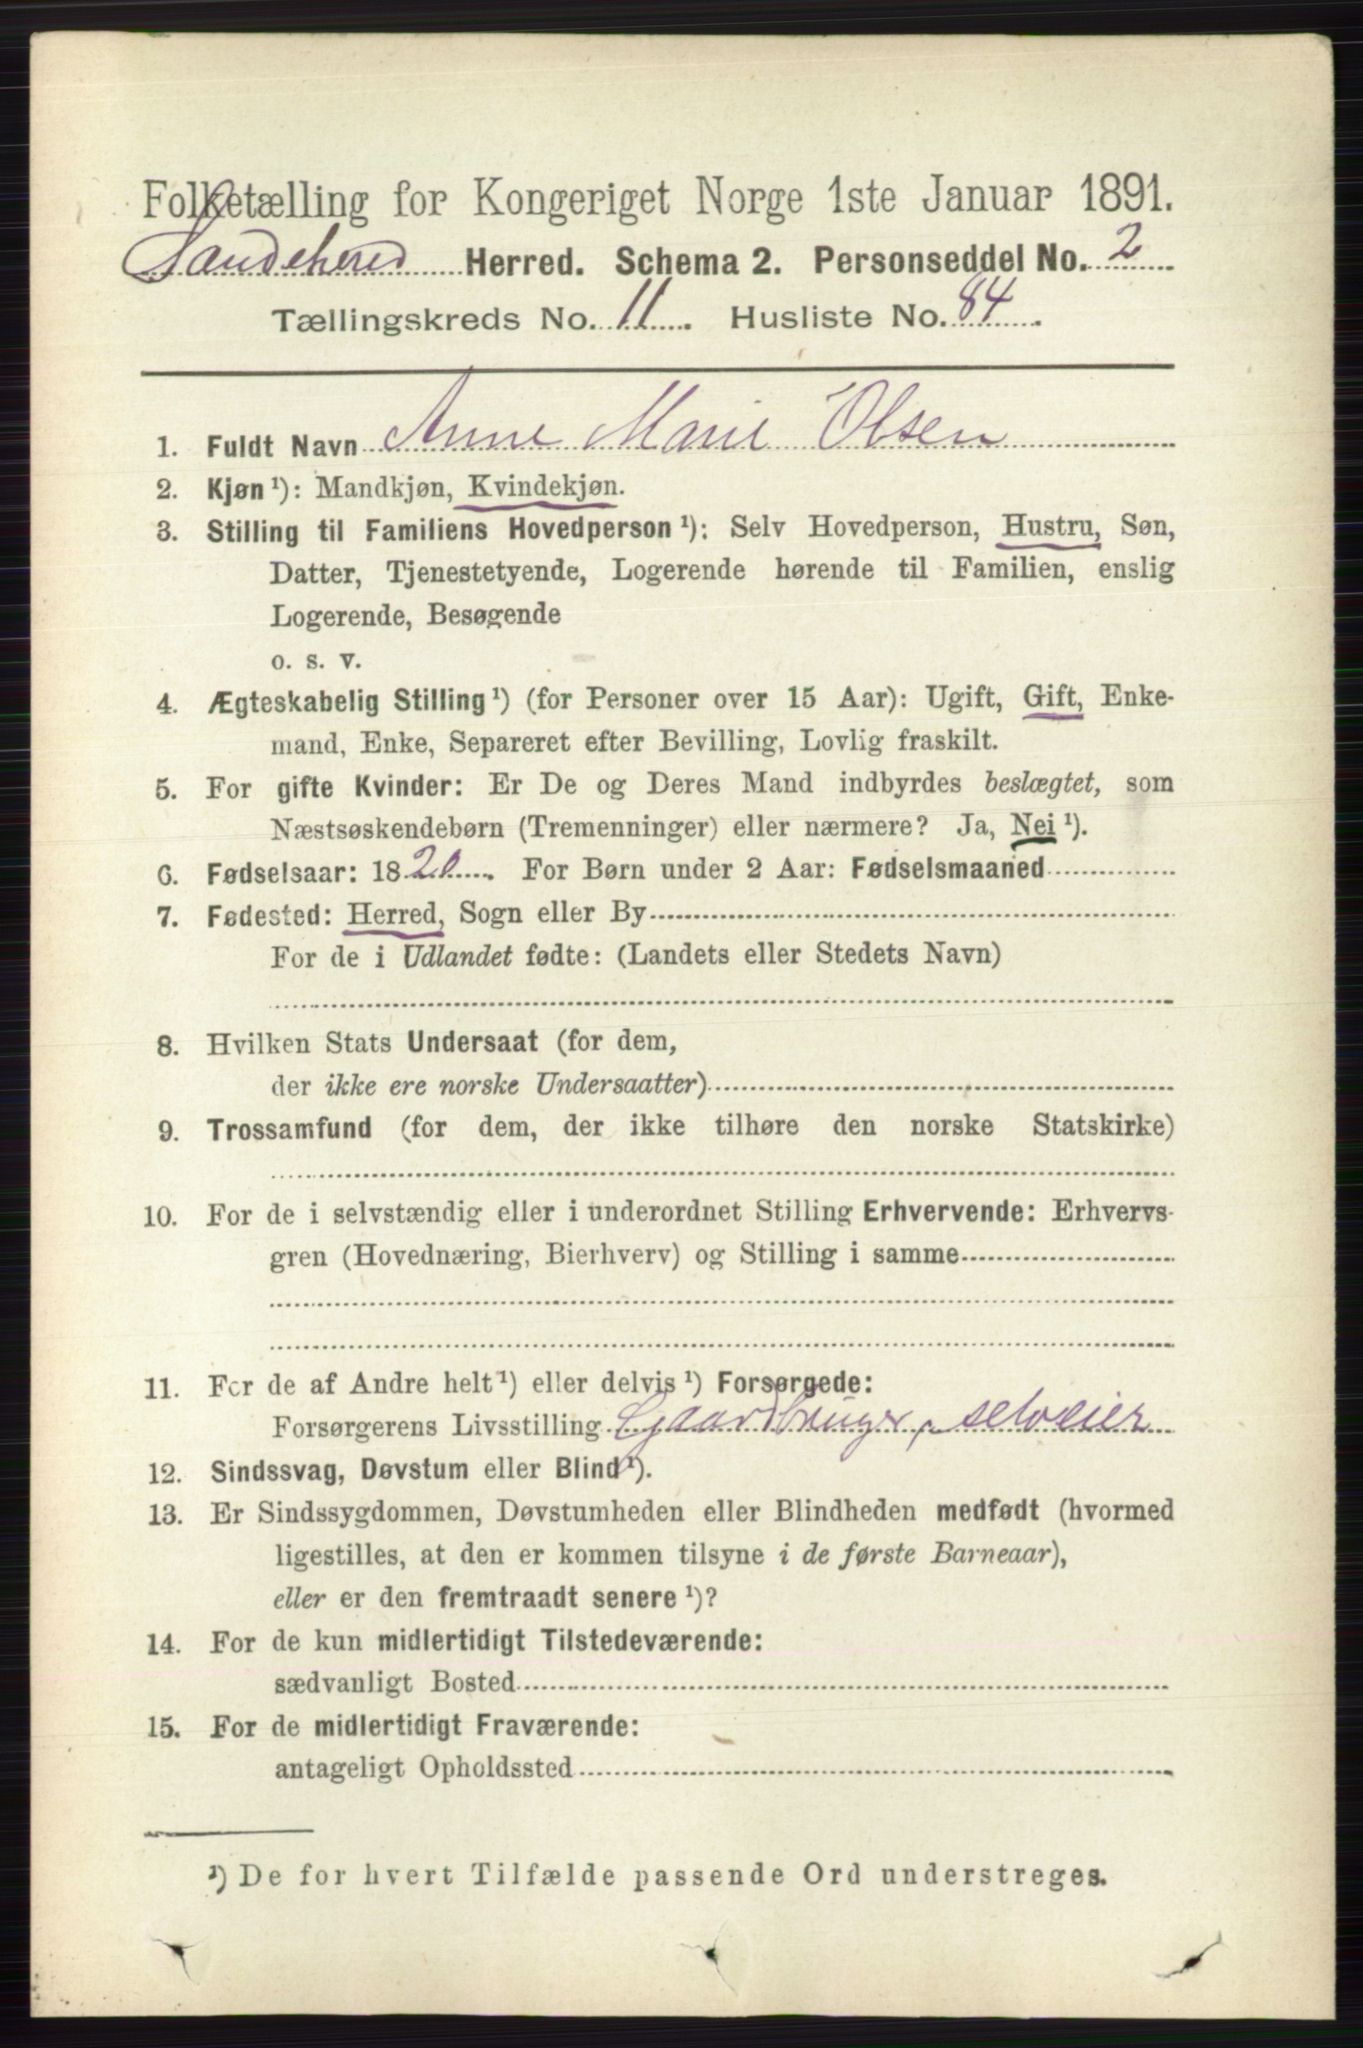 Folketælling for Kongeriget Norge 1ste Januar 1891.
Sandehered Herred. Schema 2. Personseddel No. 2
Tællingskreds No. 11. Husliste No. 84.
1. Fuldt Navn Anne Marie Olsen
2. Kjøn ¹): Mandkjøn, Kvindekjøn.
3. Stilling til Familiens Hovedperson ¹): Selv Hovedperson, Hustru, Søn,
Datter, Tjenestetyende, Logerende hørende til Familien, enslig
Logerende, Besøgende
o. s. v.
4. Ægteskabelig Stilling ¹) (for Personer over 15 Aar): Ugift, Gift, Enke-
mand, Enke, Separeret efter Bevilling, Lovlig fraskilt.
5. For gifte Kvinder: Er De og Deres Mand indbyrdes beslægtet, som
Næstsøskendebørn (Tremenninger) eller nærmere? Ja, Nei ¹).
6. Fødselsaar: 1820. For Børn under 2 Aar: Fødselsmaaned
7. Fødested: Herred, Sogn eller By
For de i Udlandet fødte: (Landets eller Stedets Navn)
8. Hvilken Stats Undersaat (for dem,
der ikke ere norske Undersaatter)
9. Trossamfund (for dem, der ikke tilhøre den norske Statskirke)
10. For de i selvstændig eller i underordnet Stilling Erhvervende: Erhvervs-
gren (Hovednæring, Bierhverv) og Stilling i samme
11. For de af Andre helt ¹) eller delvis ¹) Forsørgede:
Forsørgerens Livsstilling Gaardbruger, selveier
12. Sindssvag, Døvstum eller Blind ¹).
13. Er Sindssygdommen, Døvstumheden eller Blindheden medfødt (hvormed
ligestilles, at den er kommen tilsyne i de første Barneaar),
eller er den fremtraadt senere ¹)?
14. For de kun midlertidigt Tilstedeværende:
sædvanligt Bosted
15. For de midlertidigt Fraværende:
antageligt Opholdssted
¹) De for hvert Tilfælde passende Ord understreges.